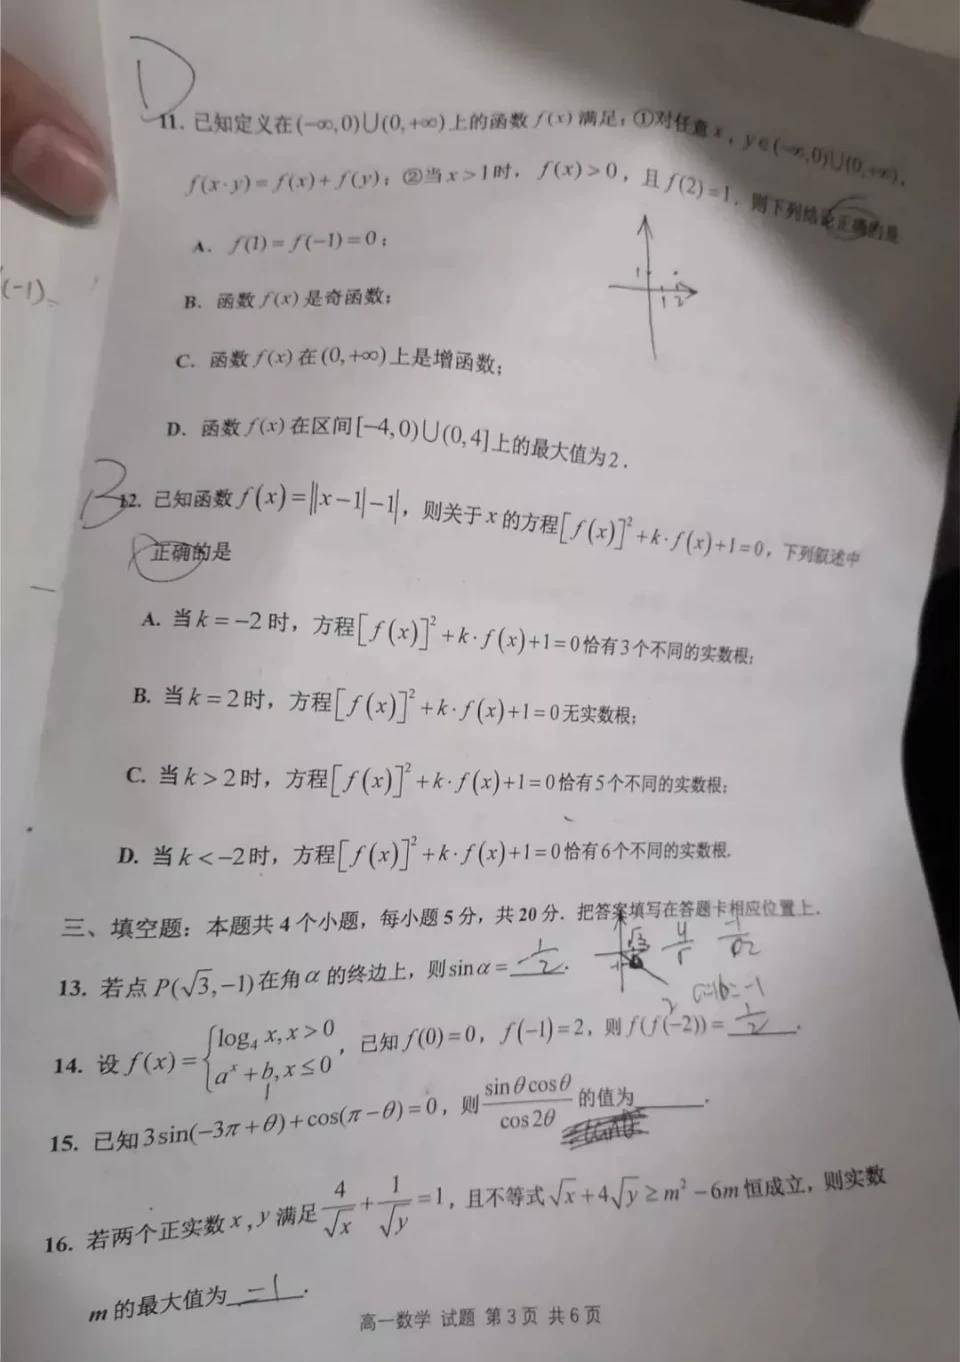 D
11. 已知定义在(-∞,0)∪(0,+∞)上的函数 f(x) 满足:①对任意 x,y∈(-∞,0)∪(0,+∞),
f(x·y)=f(x)+f(y);②当 x>1时, f(x)>0,且 f(2)=1.则下列结论正确的是
A. f(1)=f(-1)=0;
(-1)
1
1 2
B. 函数 f(x) 是奇函数;
C. 函数 f(x) 在(0,+∞)上是增函数;
D. 函数 f(x) 在区间[-4,0)∪(0,4]上的最大值为2.
B
12. 已知函数 f(x)=||x-1|-1|,则关于 x 的方程[f(x)]²+k·f(x)+1=0,下列叙述中
正确的是
A. 当 k=-2 时,方程[f(x)]²+k·f(x)+1=0恰有3个不同的实数根;
B. 当 k=2时,方程[f(x)]²+k·f(x)+1=0无实数根;
C. 当 k>2时,方程[f(x)]²+k·f(x)+1=0恰有5个不同的实数根;
D. 当 k<-2时,方程[f(x)]²+k·f(x)+1=0恰有6个不同的实数根.
三、填空题:本题共4个小题,每小题5分,共20分.把答案填写在答题卡相应位置上.
13. 若点 P(√3,-1)在角α 的终边上,则sinα=-1/2.
y/r
14. 设 f(x)={log₄ x,x>0; aˣ+b,x≤0,已知 f(0)=0, f(-1)=2,则 f(f(-2))=1/2.
15. 已知3sin(-3π+θ)+cos(π-θ)=0,则 sinθcosθ/cos2θ 的值为______.
16. 若两个正实数 x,y 满足 4/√x+1/√y=1,且不等式√x+4√y≥m²-6m恒成立,则实数
m的最大值为 -1.
高一数学 试题 第3页 共6页